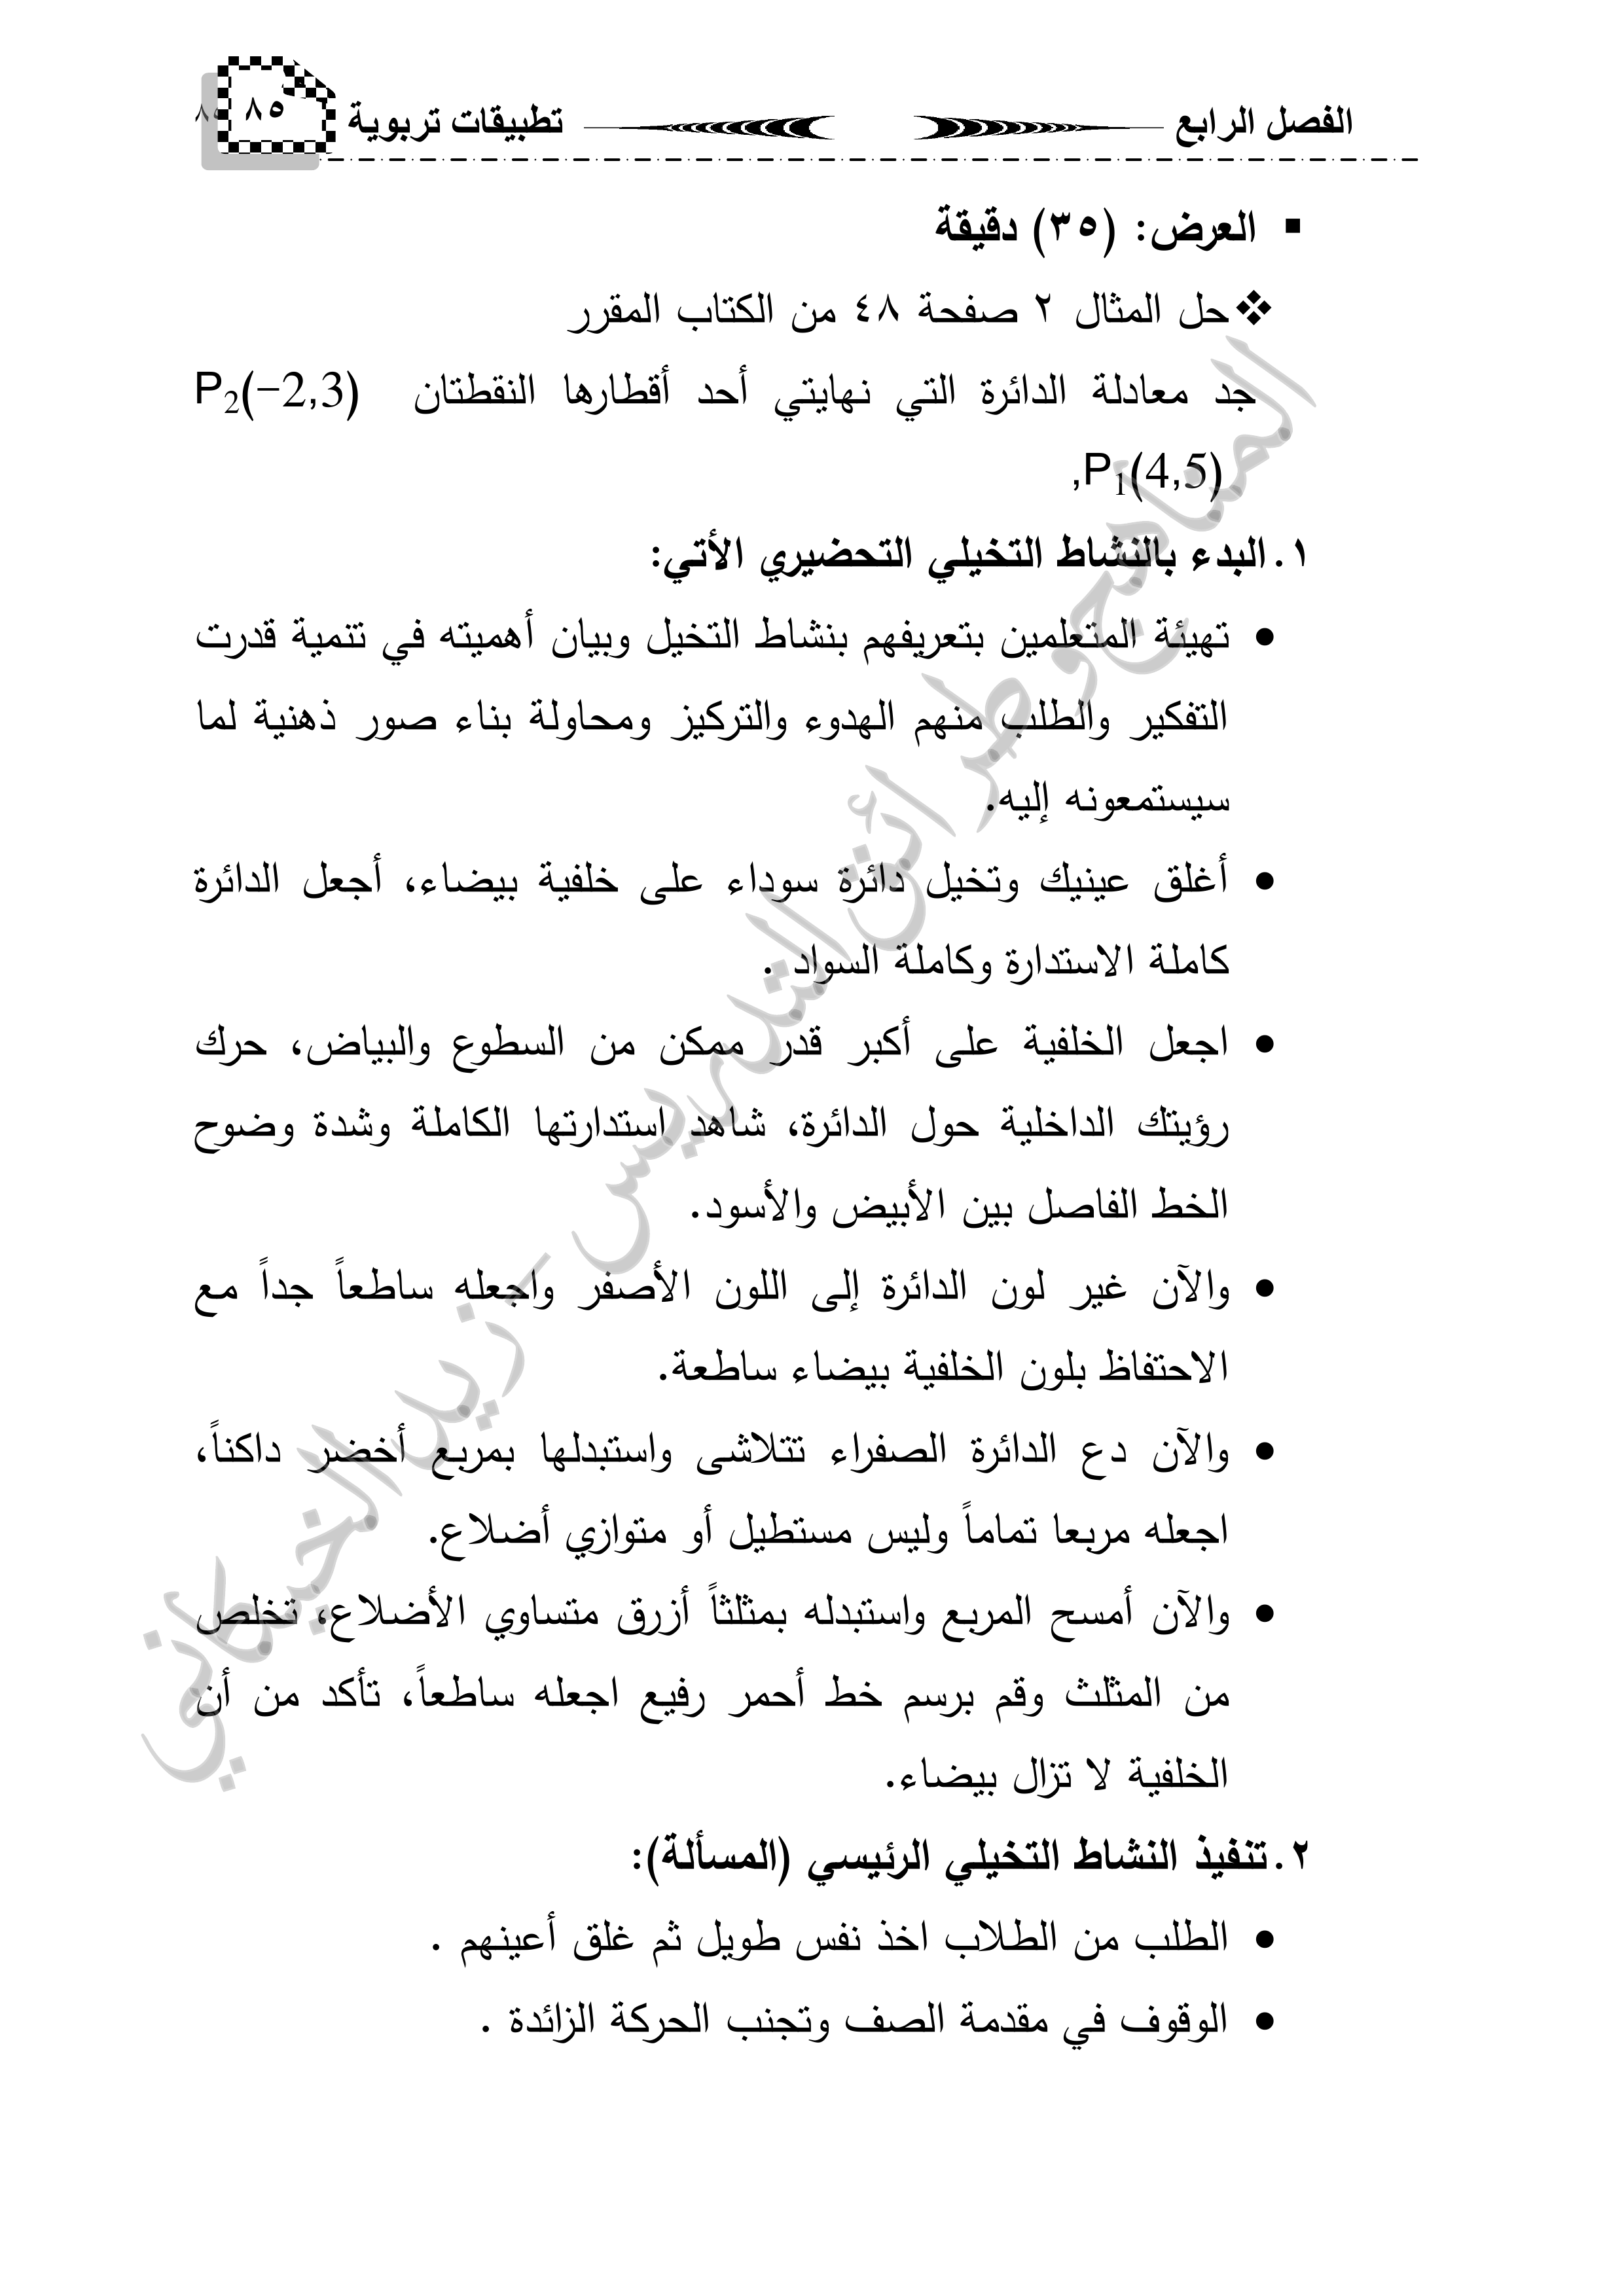 الفصل الرابع تطبيقات تربوية ٨٥
العرض: (٣٥) دقيقة
حل المثال ٢ صفحة ٤٨ من الكتاب المقرر
جد معادلة الدائرة التي نهايتي أحد أقطارها النقطتان P2(−2,3)
,P1(4,5)
١. البدء بالنشاط التخيلي التحضيري الأتي:
• تهيئة المتعلمين بتعريفهم بنشاط التخيل وبيان أهميته في تنمية قدرت
التفكير والطلب منهم الهدوء والتركيز ومحاولة بناء صور ذهنية لما
سيستمعونه إليه.
• أغلق عينيك وتخيل دائرة سوداء على خلفية بيضاء، أجعل الدائرة
كاملة الاستدارة وكاملة السواد .
• اجعل الخلفية على أكبر قدر ممكن من السطوع والبياض، حرك
رؤيتك الداخلية حول الدائرة، شاهد استدارتها الكاملة وشدة وضوح
الخط الفاصل بين الأبيض والأسود.
• والآن غير لون الدائرة إلى اللون الأصفر واجعله ساطعاً جداً مع
الاحتفاظ بلون الخلفية بيضاء ساطعة.
• والآن دع الدائرة الصفراء تتلاشى واستبدلها بمربع أخضر داكناً،
اجعله مربعا تماماً وليس مستطيل أو متوازي أضلاع.
• والآن أمسح المربع واستبدله بمثلثاً أزرق متساوي الأضلاع، تخلص
من المثلث وقم برسم خط أحمر رفيع اجعله ساطعاً، تأكد من أن
الخلفية لا تزال بيضاء.
٢. تنفيذ النشاط التخيلي الرئيسي (المسألة):
• الطلب من الطلاب اخذ نفس طويل ثم غلق أعينهم .
• الوقوف في مقدمة الصف وتجنب الحركة الزائدة .
المناهج وطرائق التدريس - زيد الخيكاني